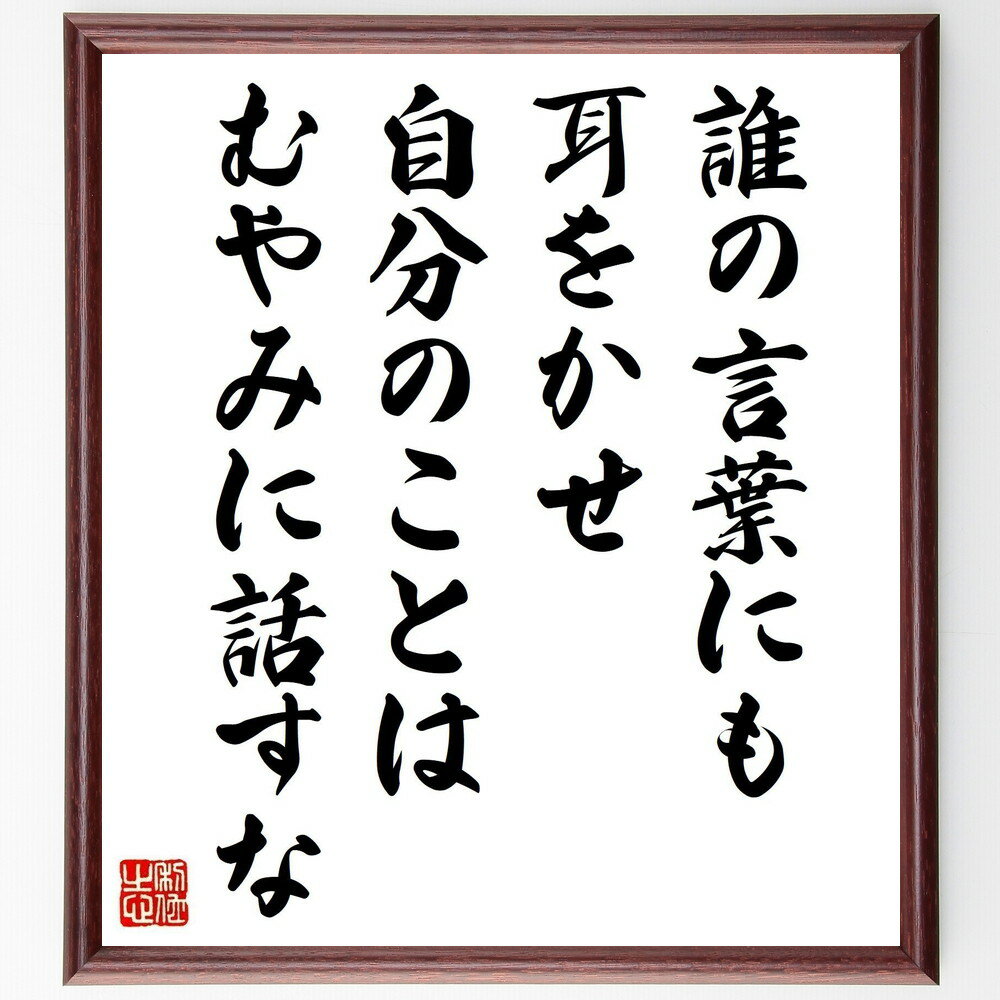 誰の言葉にも
耳をかせ
自分のことは
むやみに話すな